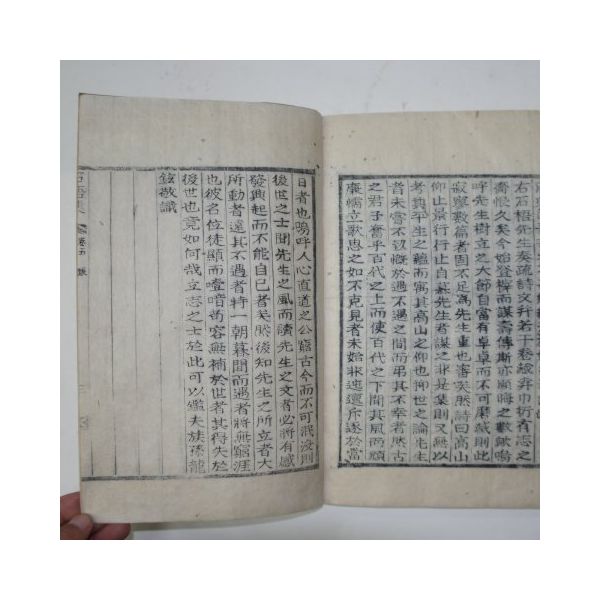 右石梧先生奏疏詩文幷若干卷絃弁巾枋有志之
齎恨久矣今始登梓而謀壽傳斯亦顯晦之數歟嗚
呼先生樹立之大節自當有卓卓而不可磨滅則此
寂寥數篇者固不足爲先生重也審矣然詩曰高山
仰止景行行止自慕先生者謀之非是集則又無以
考其平生之蘊而寓其高山之仰也仰世之論先生
者未嘗不致慨於不遇之間而弔其不幸者然古
之君子奮乎百代之上而使百代之下聞其風而頑
廉懦立歌思之如不克見者未始非迍邅斥逐於當
日者也嗚呼人心直道之公窮古今而不可泯沒則
後世之士聞先生之風而讀先生之文者必將有感
發興起而不能自已者矣然後知先生之所立者大
所動者遠其不遇者特一朝暮間而遇者將無窮涯
也彼名位徒顯而噎喑苟容無補於世者其得失於
後世也竟如何哉立志之士於此可以鑑夫族孫龍
鉉敬識
石梧集
卷五 跋